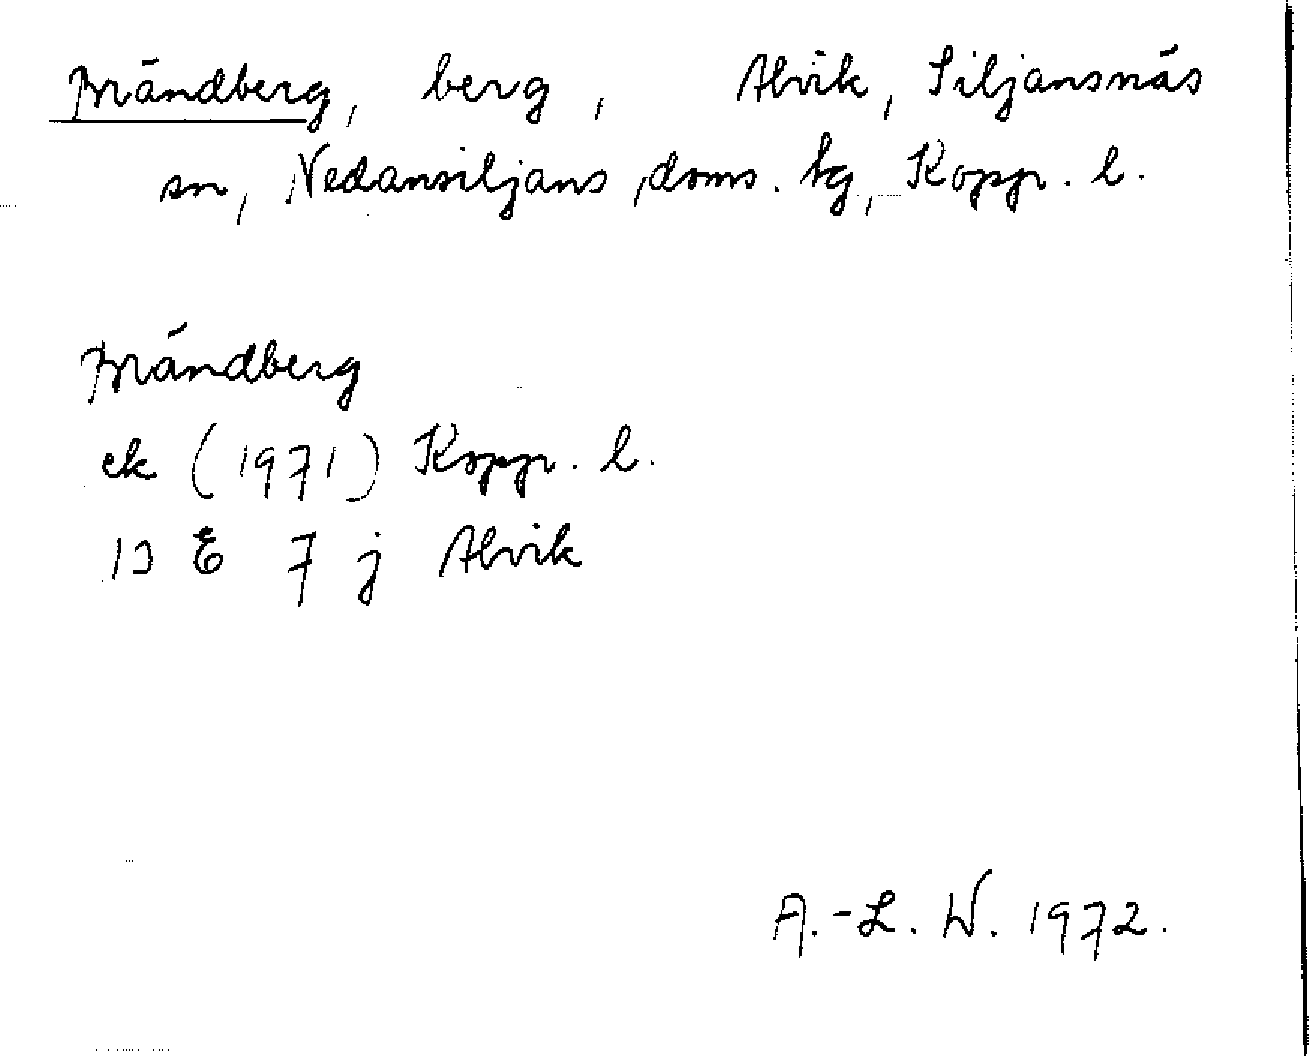 Mändberg, berg, Alvik, Siljansnäs
sn, Nedansiljans doms. tg, Kopp. l.
Mändberg
ek (1971) Kopp. l.
13 E 7 j Alvik
A.-L. W. 1972.